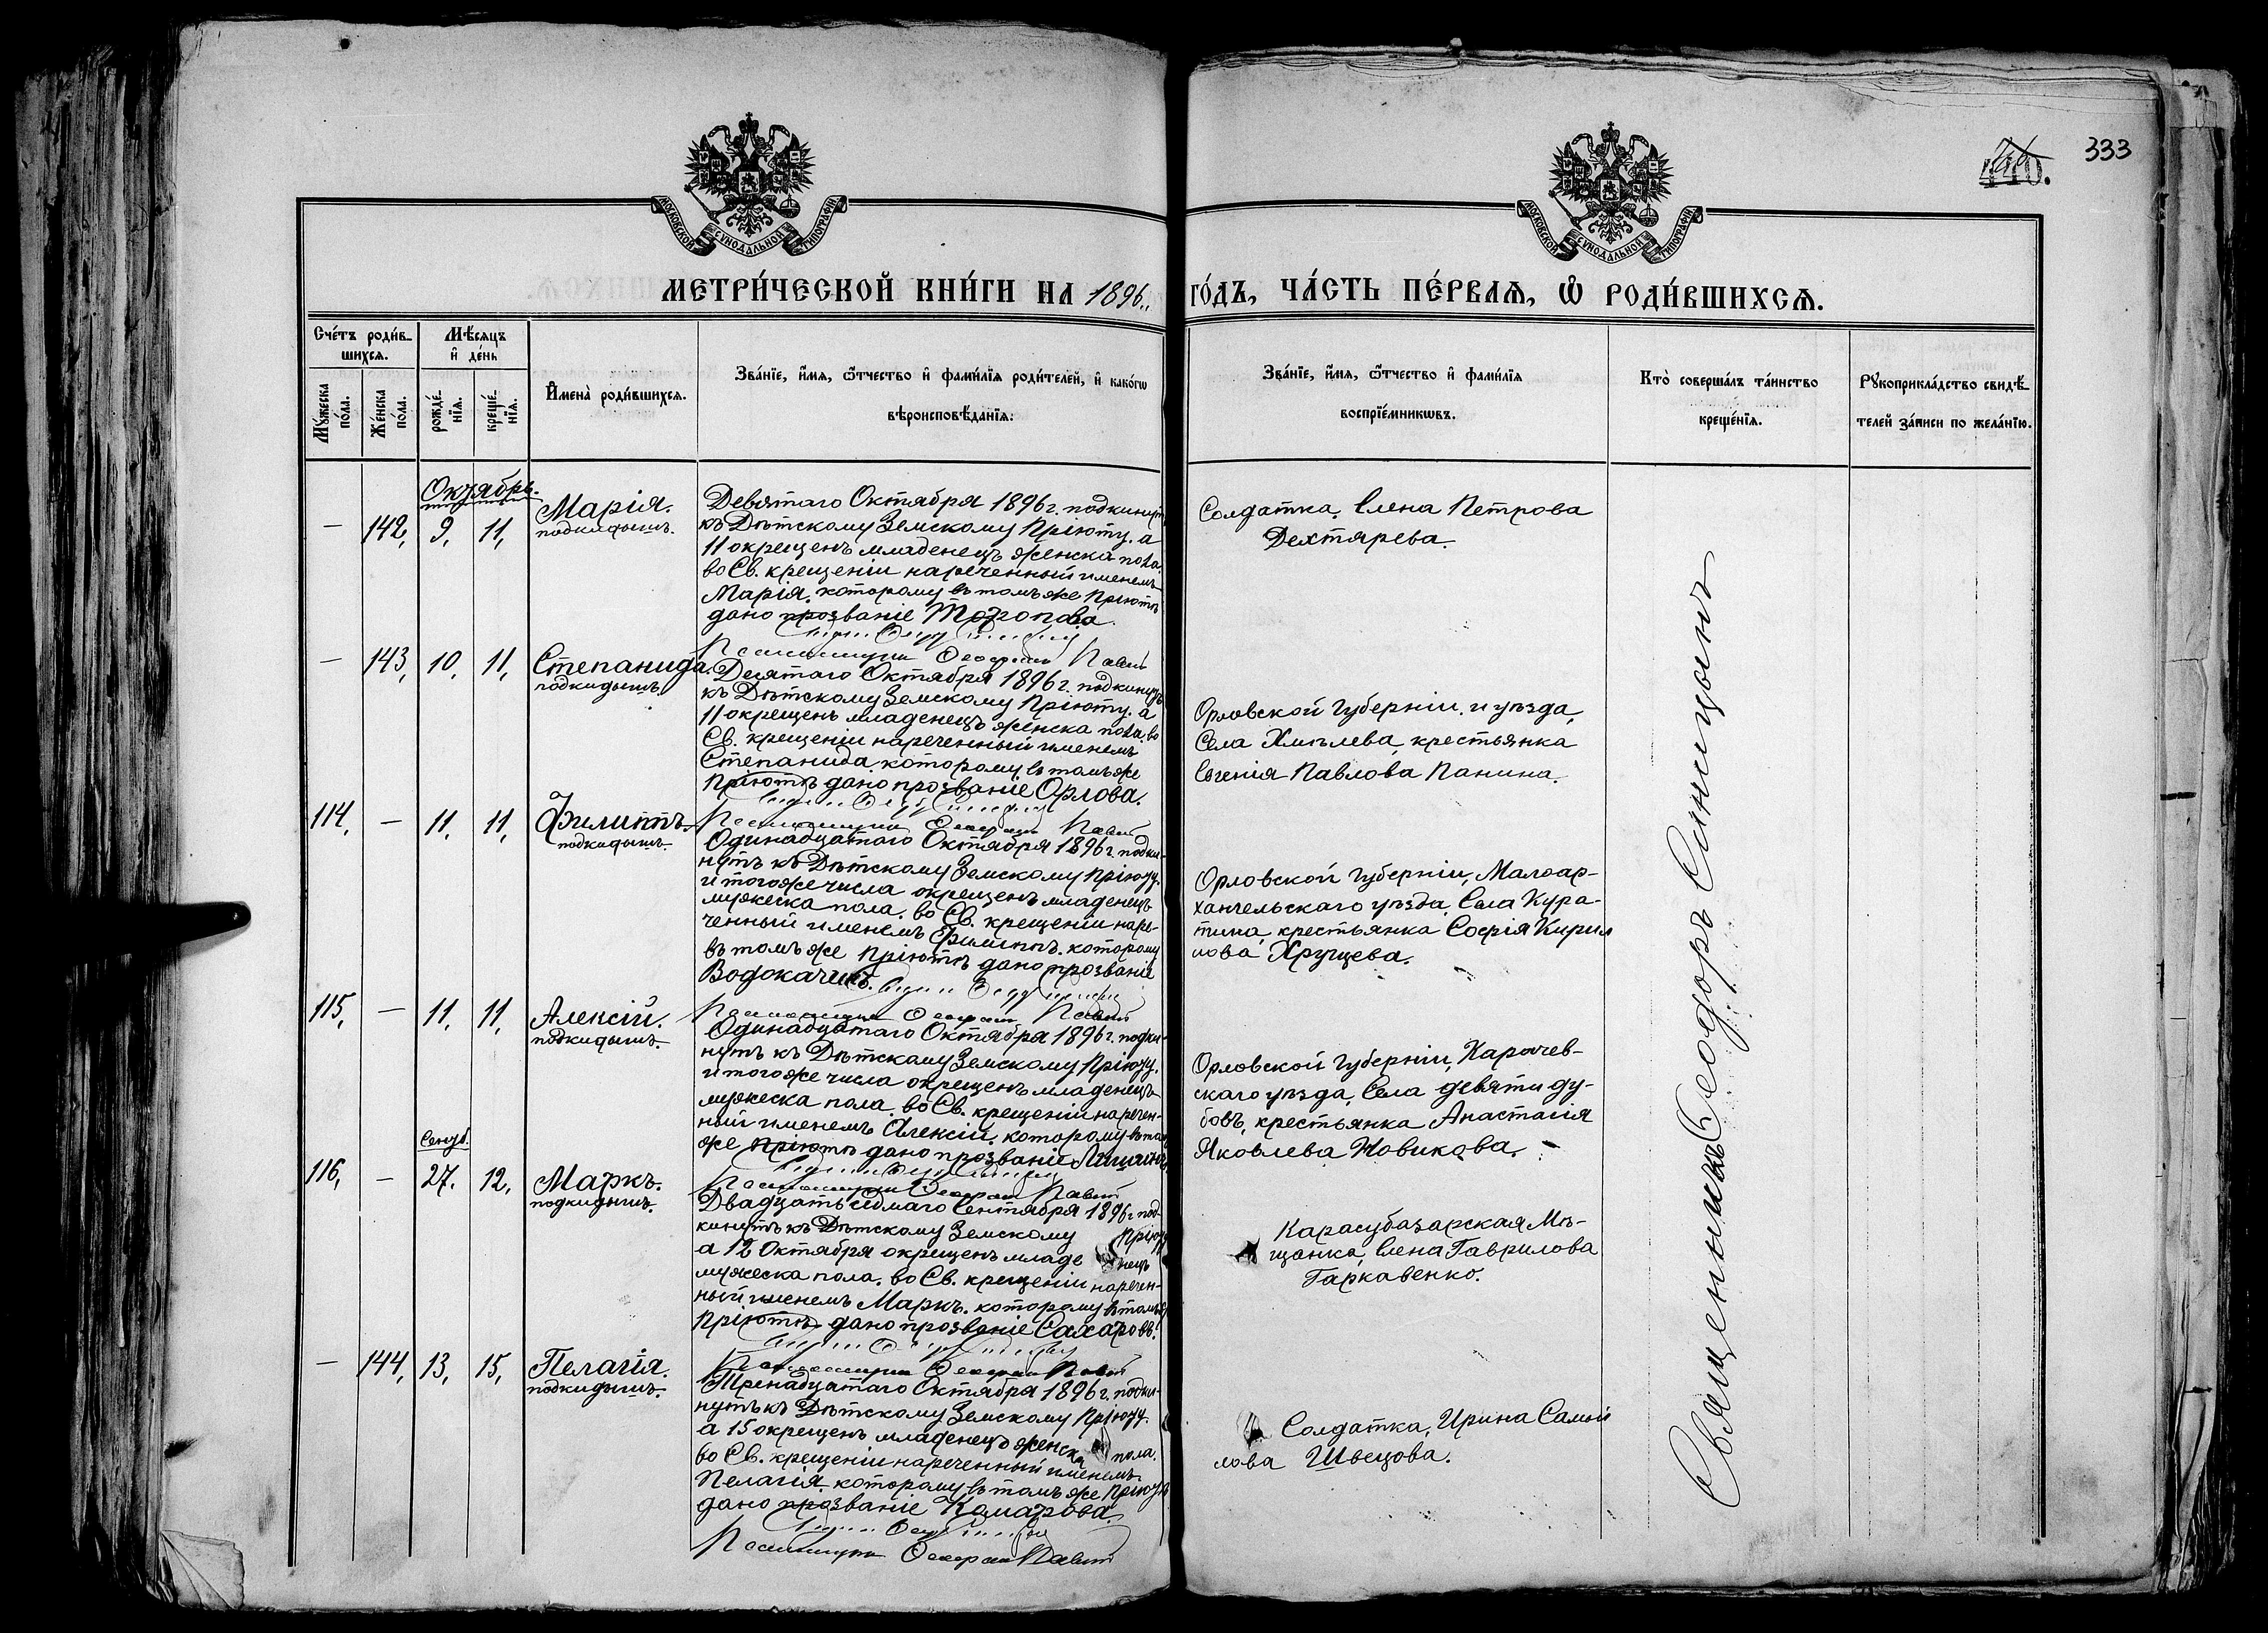 МОСКОВСКОЙ СѴНОДАЛЬНОЙ ТИПОГРАФІИ
МОСКОВСКОЙ СѴНОДАЛЬНОЙ ТИПОГРАФІИ
333
МЕТРИ́ЧЕСКОЙ КНИ́ГИ НА 1896.
ГО́ДЪ, ЧА́СТЬ ПЕ́РВАѦ, Ѽ РОДИ́ВШИХСѦ.
Сче́тъ роди́в-
шихсѧ.
Мѣ́сѧцъ
и҆ де́нь
Мꙋ́жеска
по́ла.
Же́нска
по́ла.
рожде́-
нїѧ.
креще́-
нїѧ.
И҆мена̀ роди́вшихсѧ.
Зва́нїе, и҆́мѧ, ѻ҆́тчество и҆ фами́лїѧ роди́телей, и҆ како́гѡ
вѣроисповѣ́данїѧ.
Зва́нїе, и҆́мѧ, ѻ҆́тчество и҆ фами́лїѧ
воспрїе́мникѡвъ.
Кто̀ соверша́лъ та́инство
креще́нїѧ.
Рꙋкоприкла́дство свидѣ́-
телей за́писи по жела́нїю.
Октябрь.
— 142, 9, 11,
Марія.
подкидышъ.
Девятаго Октября 1896 г. подкинутъ
къ Дѣтскому Земскому Пріюту, а
11 окрещенъ младенецъ женска пола.
во Св. крещеніи нареченный именемъ
Марія, которому въ томъ же Пріютѣ
дано прозваніе Топорова.
Солдатка, Елена Петрова
Дехтярева.
— 143, 10, 11,
Степанида.
подкидышъ.
Десятаго Октября 1896 г. подкинутъ
къ Дѣтскому Земскому Пріюту, а
11 окрещенъ младенецъ женска пола, во
Св. крещеніи нареченный именемъ
Степанида, которому въ томъ же
Пріютѣ дано прозваніе Орлова.
Орловской Губерніи и уѣзда,
Села Хмѣлева, крестьянка
Евгенія Павлова Панина.
114, — 11, 11,
Филиппъ.
подкидышъ.
Одинадцатаго Октября 1896 г. подки-
нутъ къ Дѣтскому Земскому Пріюту.
и того же числа окрещенъ младенецъ
мужеска пола, во Св. крещеніи наре-
ченный именемъ Филиппъ, которому
въ томъ же Пріютѣ дано прозваніе
Орловской Губерніи, Малоар-
хангельскаго уѣзда, Села Кура-
кина, крестьянка Софія Кирил
лова Хрущева.
115, — 11, 11,
Алексій.
подкидышъ.
Одинадцатаго Октября 1896 г. подки-
нутъ къ Дѣтскому Земскому Пріюту.
и того же числа окрещенъ младенецъ
мужеска пола, во Св. крещеніи наречен-
ный именемъ Алексій, которому въ том
же Пріютѣ дано прозваніе
Орловской Губерніи, Карачев-
скаго уѣзда, Села девяти ду-
бовъ, крестьянка Анастасія
Яковлева Новикова.
Сентяб.
116, — 27. 12,
Маркъ.
подкидышъ.
Двадцать седмаго Сентября 1896 г. под-
кинутъ къ Дѣтскому Земскому Пріюту
а 12 Октября окрещенъ младе нецъ
мужеска пола, во Св. крещеніи наречен-
ный именемъ Маркъ, которому въ томъ
Пріютѣ дано прозваніе Сахаровъ.
Карасубазарская Мѣ-
щанка, Елена Гаврилова
Гаркавенко.
— 144, 13, 15,
Пелагія.
подкидышъ.
Тринадцатаго Октября 1896 г. подки-
нутъ къ Дѣтскому Земскому Пріюту.
а 15 окрещенъ младенецъ женска пола.
во Св. крещеніи нареченный именемъ
Пелагія, которому въ томъ же Пріютѣ
дано прозваніе Комарова.
Солдатка, Ирина Самой
лова Швецова.
Священникъ Ѳеодоръ Синицынъ